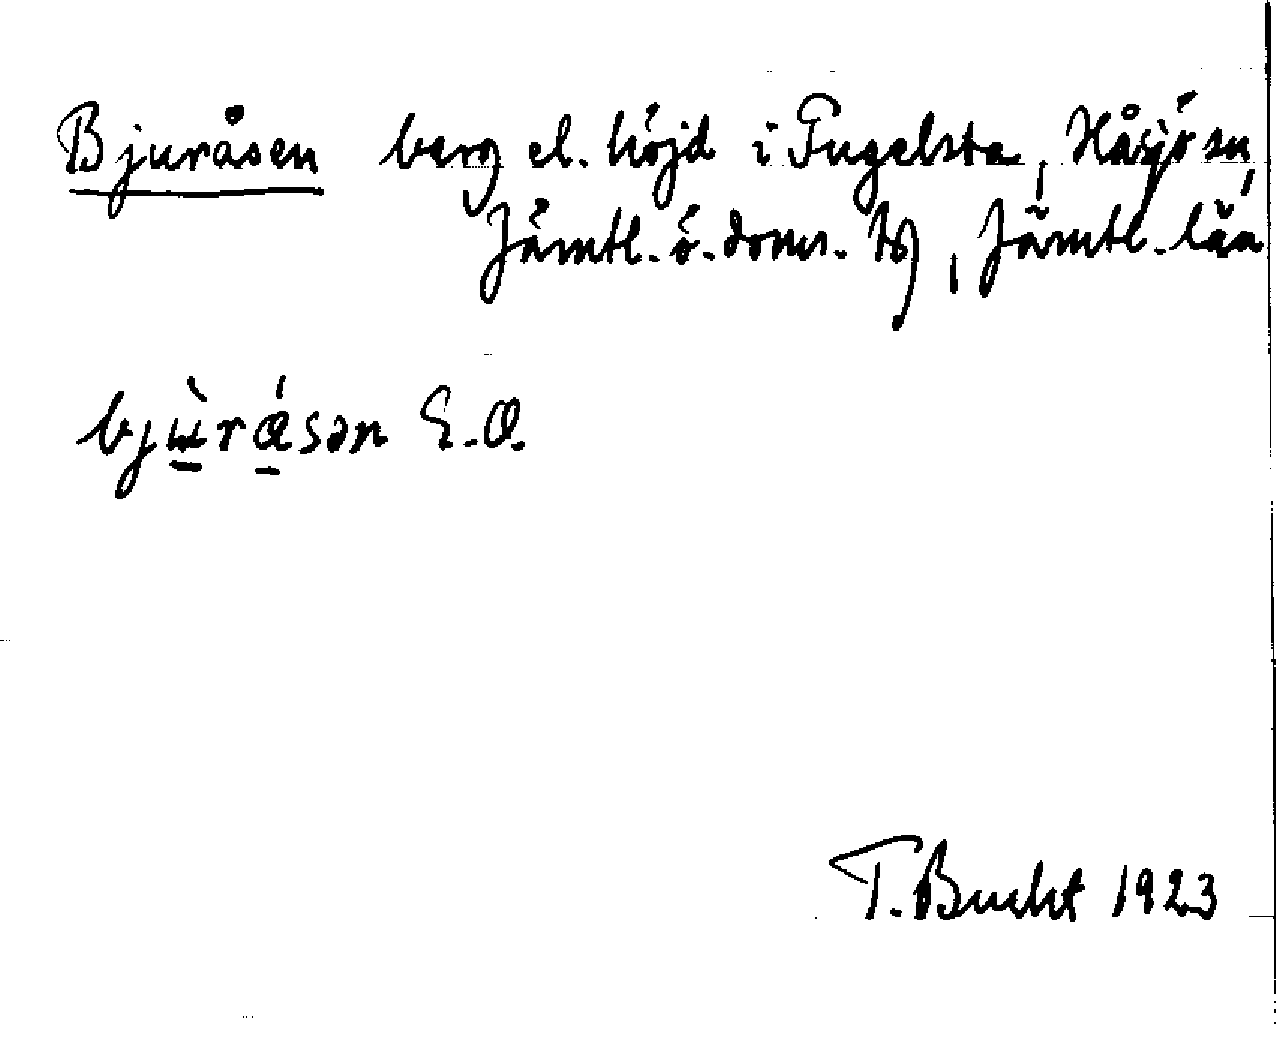 Bjuråsen berg el. höjd i Fugelsta, Håsjö sn,
Jämtl. ö. doms. ts, Jämtl. län
bjùrásən E.O.
T. Bucht 1923